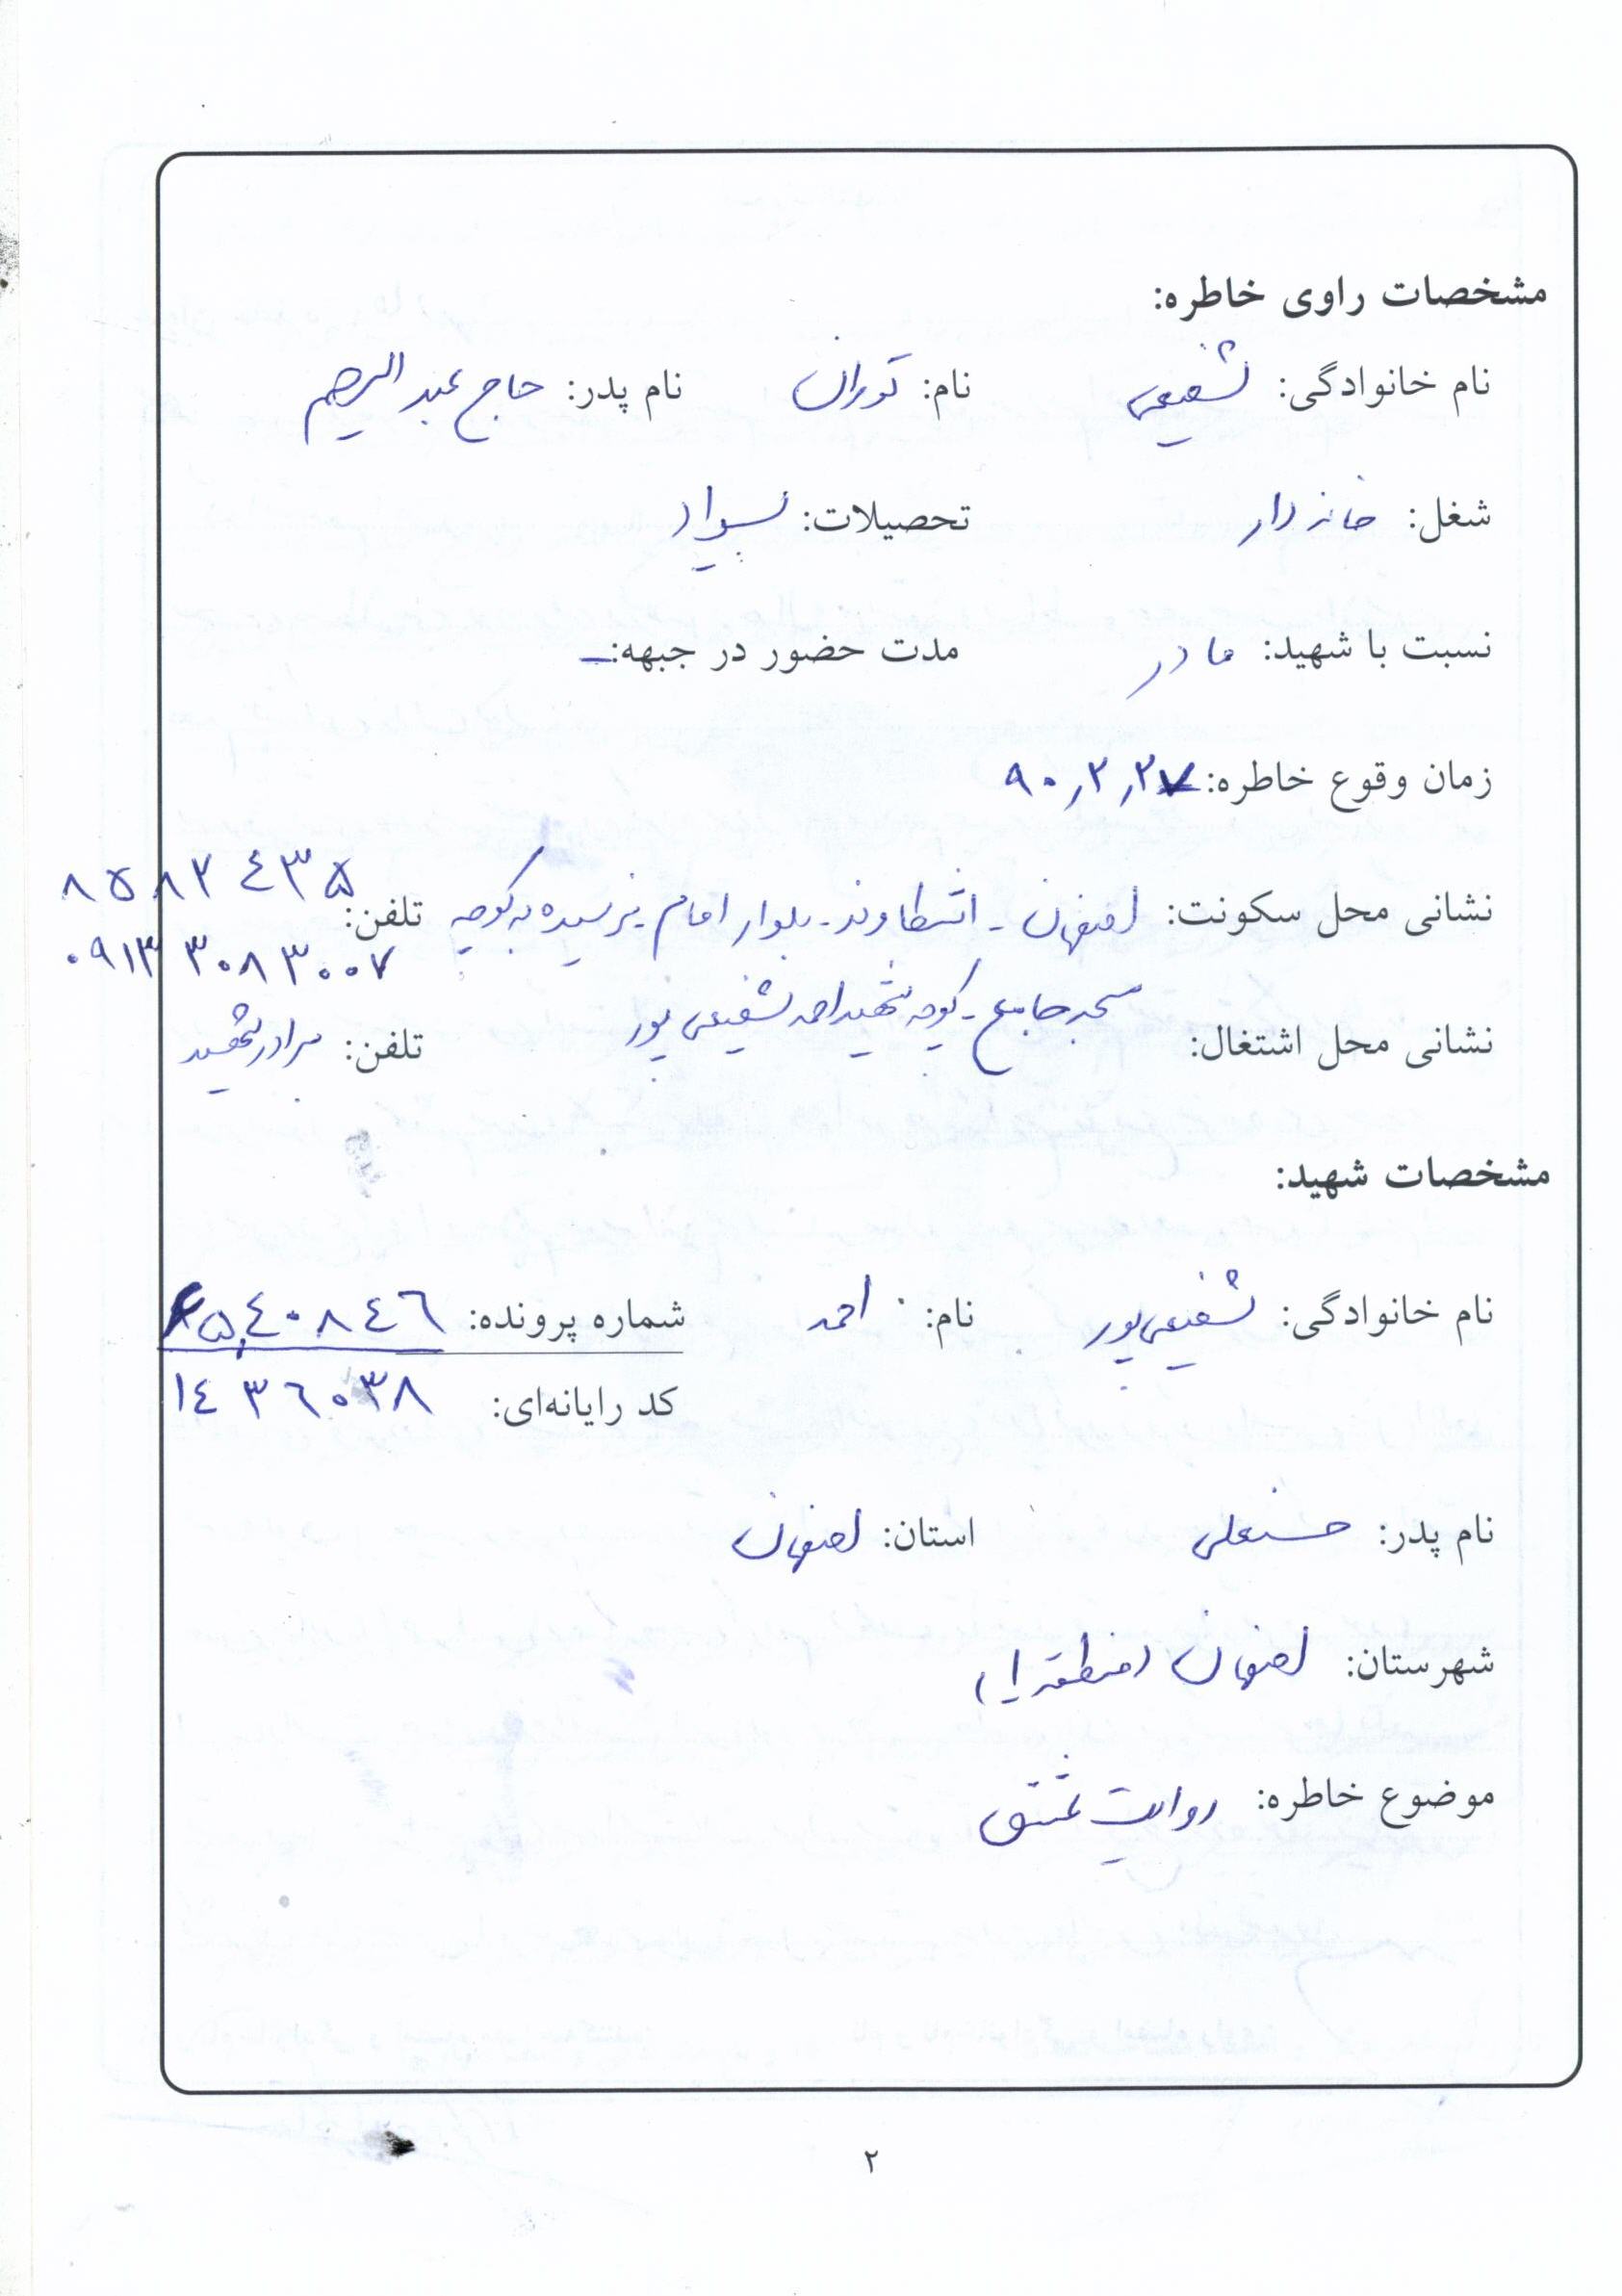 مشخصات راوی خاطره:
نام خانوادگی: شفیعی نام: توران نام پدر: حاج عبدالرحیم
شغل: خانه دار تحصیلات: بیسواد
نسبت با شهید: مادر مدت حضور در جبهه: ـ
زمان وقوع خاطره: ۹۰٫۲٫۲۷
نشانی محل سکونت: اصفهان - - بلوار امام - نرسیده به کوچه تلفن: ۸۵۸۲۴۳۵
۰۹۱۳۳۰۸۳۰۰۷
مسجد جامع - کوچه شهید احمد شفیعی پور
نشانی محل اشتغال: تلفن: برادر شهید
مشخصات شهید:
نام خانوادگی: شفیعی پور نام: احمد شماره پرونده: ۴۰۸۴۶
کد رایانه‌ای: ۱۴۳۶۰۳۸
نام پدر: حسنعلی استان: اصفهان
شهرستان: اصفهان (منطقه ۱)
موضوع خاطره: روایت عشق
۲